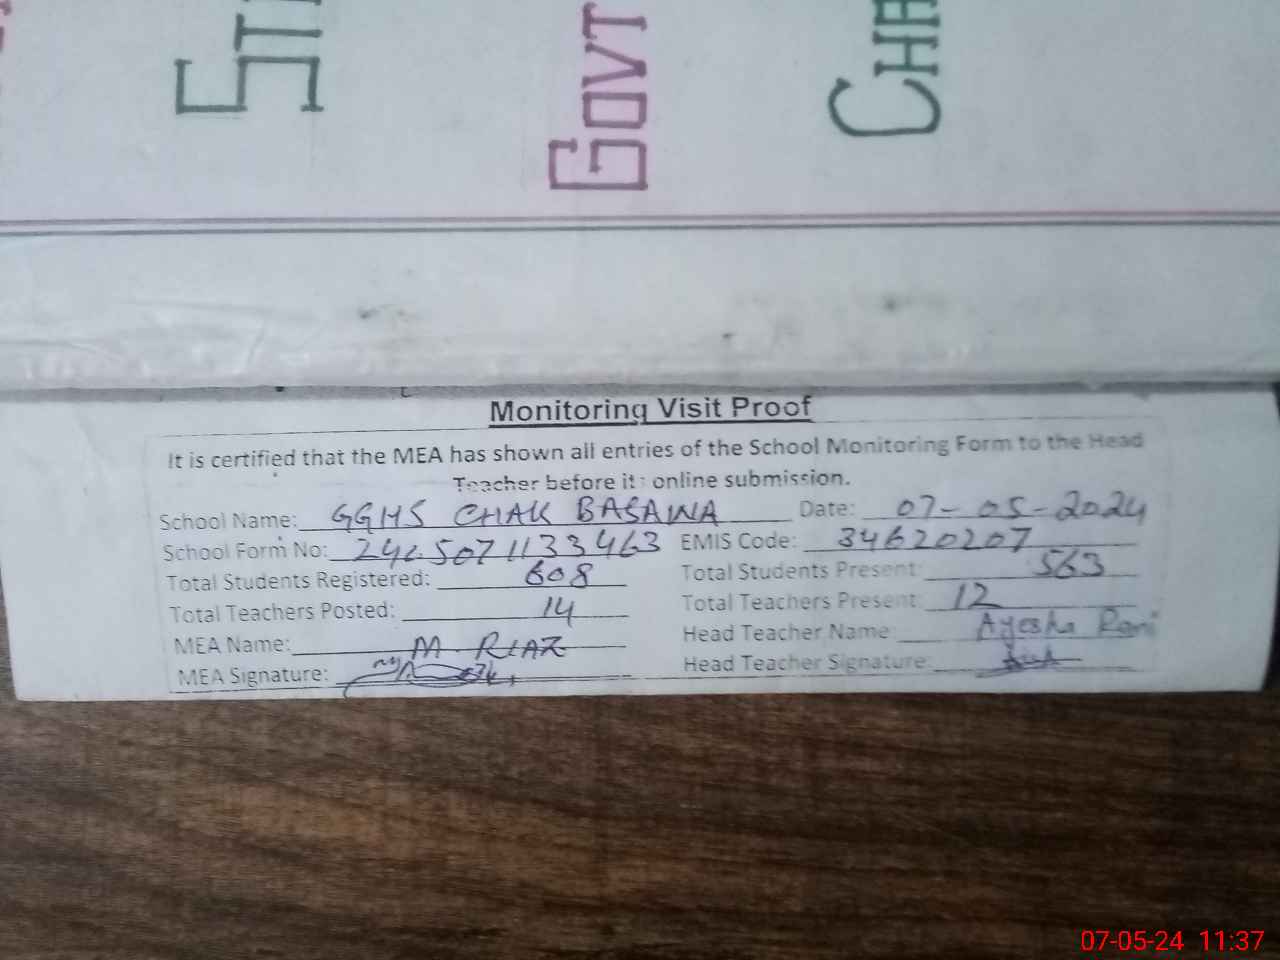 STI
GOVT
CHA
Monitoring Visit Proof
It is certified that the MEA has shown all entries of the School Monitoring Form to the Head
Teacher before its online submission.
School Name: GGHS CHAK BASAWA Date: 07-05-2024
School Form No: EMIS Code: 34620207
Total Students Registered: 608 Total Students Present: 563
Total Teachers Posted: 14 Total Teachers Present: 12
MEA Name: M. RIAZ Head Teacher Name: Ayesha Rani
MEA Signature: Head Teacher Signature:
07-05-24 11:37